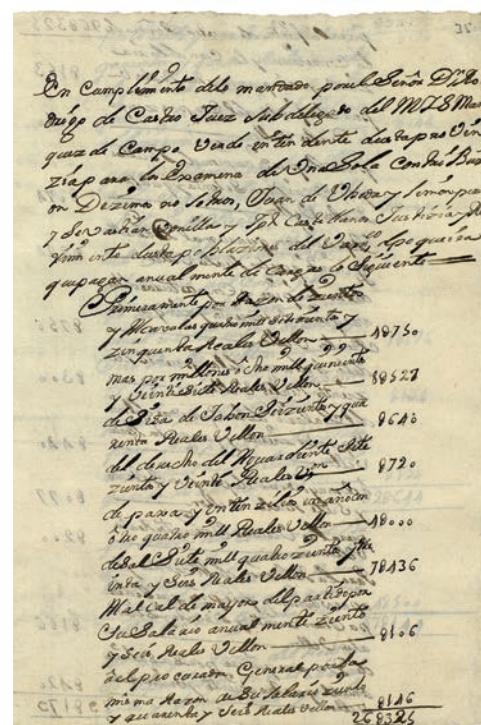 En Cumplimiento de lo mandado por el Señor Dn Ro
drigo de Castro Juez Subdelegado del M I S Mar
quez de Campo Verde entendente desta provin
zia para la Examena de Una Sola Contribuz
on Dezimos nosotros, Juan de Ubeda y Simon
y Sevastian Bonilla y Castellanos Justizia y Re
ximiento
que pagan anual mente de Cargas lo Siguiente
Primeramente por Razon de zientos
y Alcavalas quatro mill setezientos y
zinquenta Reales Vellon — 48750
mas por millones ocho mill quinientos
y Veinte siete Reales Vellon — 88527
de Sisa de Jabon Seizientos y qua
renta Reales Vellon — 8640
del derecho del Aguardiente Sete
zientos y Veinte Reales Von — 8720
de paxa y Utenzilios
quatro mill Reales Vellon — 48000
de Sal Siete mill quatrozientos y tre
inta y Seis Reales Vellon — 78436
Al Alcalde mayor del partido por
Su Salario anual mente ziento
y Seis Reales Vellon — 8106
del procurador General por la
misma Razon de Su Salario ziento
y quarenta y Seis Reales Vellon — 8146
268325